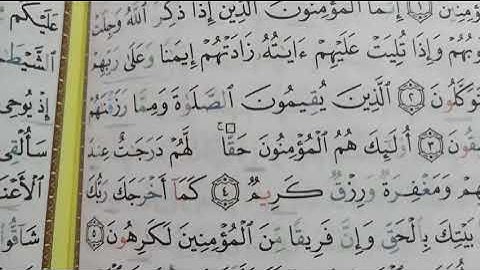 مِنِينَ ١ إِنَّمَا ٱلْمُؤْمِنُونَ ٱلَّذِينَ إِذَا ذُكِرَ ٱللَّهُ وَجِلَتْ
وبُهُمْ وَإِذَا تُلِيَتْ عَلَيْهِمْ ءَايَٰتُهُۥ زَادَتْهُمْ إِيمَٰنًا وَعَلَىٰ رَبِّهِمْ
تَوَكَّلُونَ ٢ ٱلَّذِينَ يُقِيمُونَ ٱلصَّلَوٰةَ وَمِمَّا رَزَقْنَٰهُمْ
فِقُونَ ٣ أُو۟لَٰٓئِكَ هُمُ ٱلْمُؤْمِنُونَ حَقًّا لَّهُمْ دَرَجَٰتٌ عِندَ
هِمْ وَمَغْفِرَةٌ وَرِزْقٌ كَرِيمٌ ٤ كَمَآ أَخْرَجَكَ رَبُّكَ
بَيْتِكَ بِٱلْحَقِّ وَإِنَّ فَرِيقًا مِّنَ ٱلْمُؤْمِنِينَ لَكَٰرِهُونَ ٥
عَلَيْكُم
ٱلشَّيْطَٰ
إِذْ يُوحِى
سَأُلْقِى
ٱلْأَعْنَ
شَآقُّوا۟